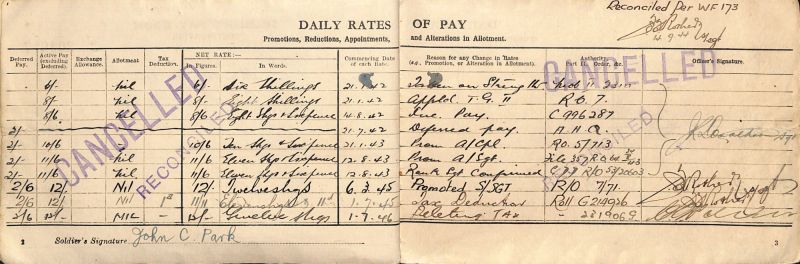 Reconciled Per WF 173
DAILY RATES OF PAY
Promotions, Reductions, Appointments, and Alterations in Allotment.
Deferred Pay. Active Pay (excluding Deferred). Exchange Allowance. Allotment Tax Deduction. NET RATE:— In Figures. In Words. Commencing Date of each Rate. Reason for any Change in Rates (e.g., Promotion, or Alteration in Allotment). Authority, Part II. Order, &c. Officer's Signature.
6/- Nil 6/- Six Shillings 21.7.42 Taken on Strength
8/- Nil 8/- Eight Shillings 21.1.42 Appld T.G. II R.O. 7.
8/6 Nil 8/6 Eight Shgs & Sixpence 14.8.42 Inc. Pay. C996287
2/- 21.7.42 Deferred pay. A.H.Q.
2/- 10/6 10/6 Ten Shgs & Sixpence 21.1.43 Prom A/Cpl. RO.57113
2/- 11/6 Nil 11/6 Eleven Shgs & Sixpence 12.8.43 Prom A/Sgt.
2/- 11/6 Nil 11/6 Eleven Shgs & Sixpence 12.8.43 Rank Sgt Confirmed
2/6 12/- Nil 12/- Twelve shgs 6.3.45 Promoted S/SGT R/O 7/71.
2/6 12/- Nil 1d 11/11 Eleven shgs & 11d 1.7.45 Tax Deduction Roll G219926
2/6 12/- NIL - 12/- Twelve Shgs 1-7.46 Deleting TAX - 2219069
CANCELLED
RECONCILED
CANCELLED
RECONCILED
2 Soldier's Signature John C. Park 3